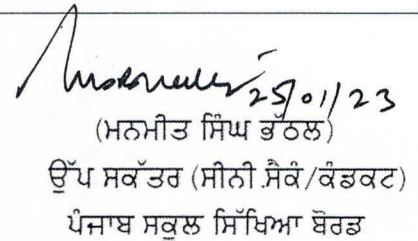 25/01/23
(ਮਨਮੀਤ ਸਿੰਘ ਭੱਠਲ)
ਉੱਪ ਸਕੱਤਰ (ਸੀਨੀ.ਸੈਕੰ/ਕੰਡਕਟ)
ਪੰਜਾਬ ਸਕੂਲ ਸਿੱਖਿਆ ਬੋਰਡ